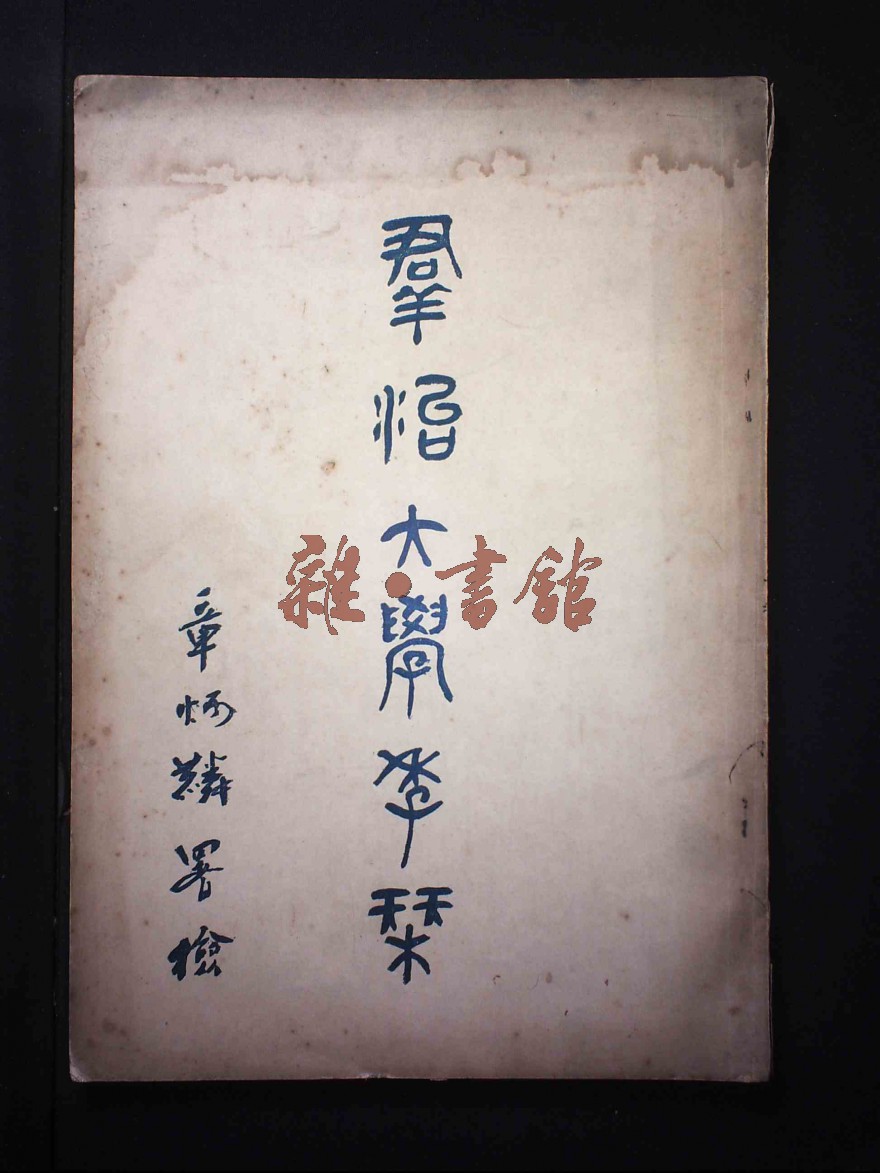 羣治大學季栞
章炳麟署檢
雜·書館